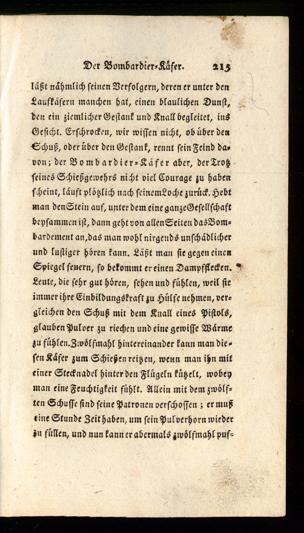 Der Bombardier-Käfer. 215
läßt nähmlich seinen Verfolgern, deren er unter den
Laufkäfern manchen hat, einen blaulichen Dunst,
den ein ziemlicher Gestank und Knall begleitet, ins
Gesicht. Erschrocken, wir wissen nicht, ob über den
Schuß, oder über den Gestank, rennt sein Feind da-
von; der Bombardier-Käfer aber, der Trotz
seines Schießgewehrs nicht viel Courage zu haben
scheint, läuft plötzlich nach seinem Loche zurück. Hebt
man den Stein auf, unter dem eine ganze Gesellschaft
beysammen ist, dann geht von allen Seiten das Bom-
bardement an, das man wohl nirgends unschädlicher
und lustiger hören kann. Läßt man sie gegen einen
Spiegel feuern, so bekommt er einen Dampfflecken.
Leute, die sehr gut hören, sehen und fühlen, weil sie
immer ihre Einbildungskraft zu Hülfe nehmen, ver-
gleichen den Schuß mit dem Knall eines Pistols,
glauben Pulver zu riechen und eine gewisse Wärme
zu fühlen. Zwölfmahl hintereinander kann man die-
sen Käfer zum Schießen reitzen, wenn man ihn mit
einer Stecknadel hinter den Flügeln kützelt, wobey
man eine Feuchtigkeit fühlt. Allein mit dem zwölf-
ten Schusse sind seine Patronen verschossen; er muß
eine Stunde Zeit haben, um sein Pulverhorn wieder
zu füllen, und nun kann er abermals zwölfmahl puf-